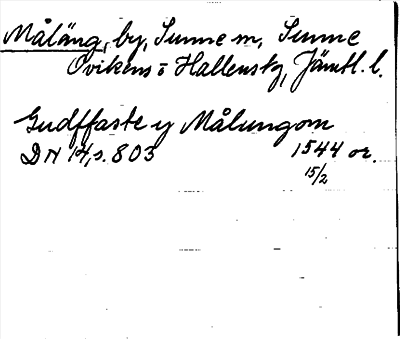 Måläng, by, Sunne sn, Sunne
Ovikens o Hallens tg, Jämtl. l.
Gudffaste y Målungom
DN 14, s. 803 1544 or.
15/2